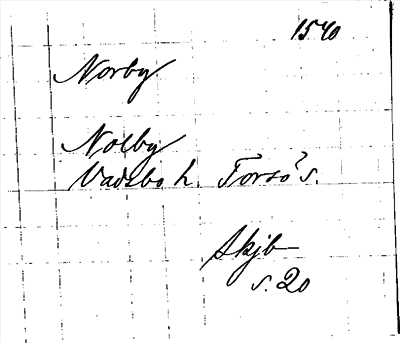 1540
Norby
Nolby
Vadsbo h. Torsö s.
Skjb
s. 20